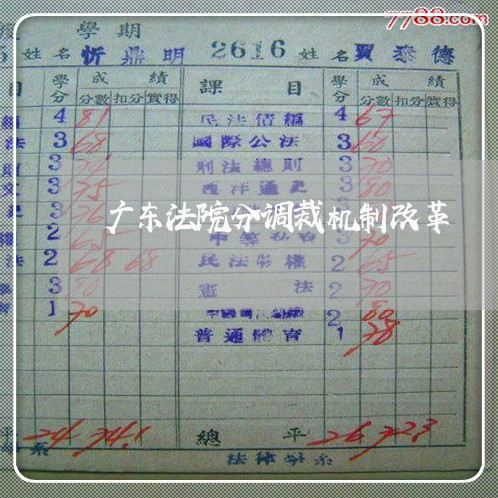 7788.com
學期
姓名 忻鼎明 2616 姓名 賈泰德
目 學分 成績 課目 學分 成績
分數 扣分 實得 分數 扣分 實得
4 81 民法債編 4 67
法 3 68 國際公法 3 60
則 3 刑法總則 3 70
文 3 75 西洋通史 3 80
史 3 76 3
廣东法院分调裁机制改革
2 65 3 70
法 2 68 68 民法物權 2 65
3 80 憲法 2 70
育 1 70 2 80
普通體育 1 78
平 24 74.1 總平 26 72.3
系 法律學系